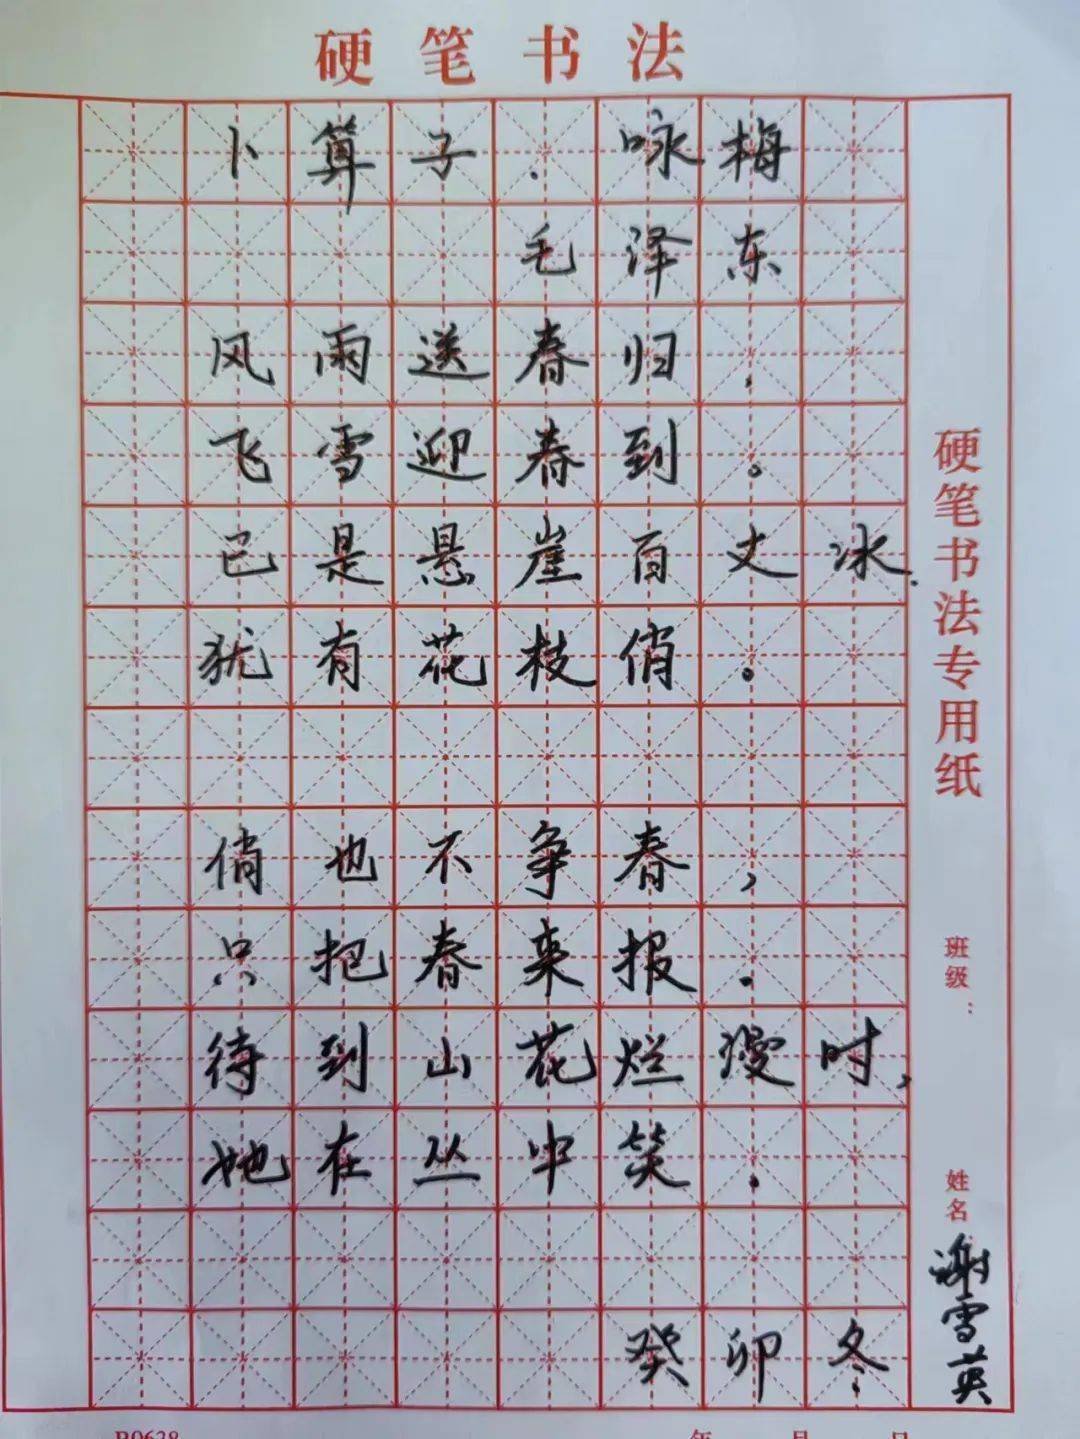 硬笔书法
卜算子·咏梅
毛泽东
风雨送春归,
飞雪迎春到。
已是悬崖百丈冰.
犹有花枝俏。
俏也不争春,
只把春来报.
待到山花烂漫时,
她在丛中笑.
癸卯冬
硬笔书法专用纸
班级:
姓名
谢雪英
R0638
年 月 日